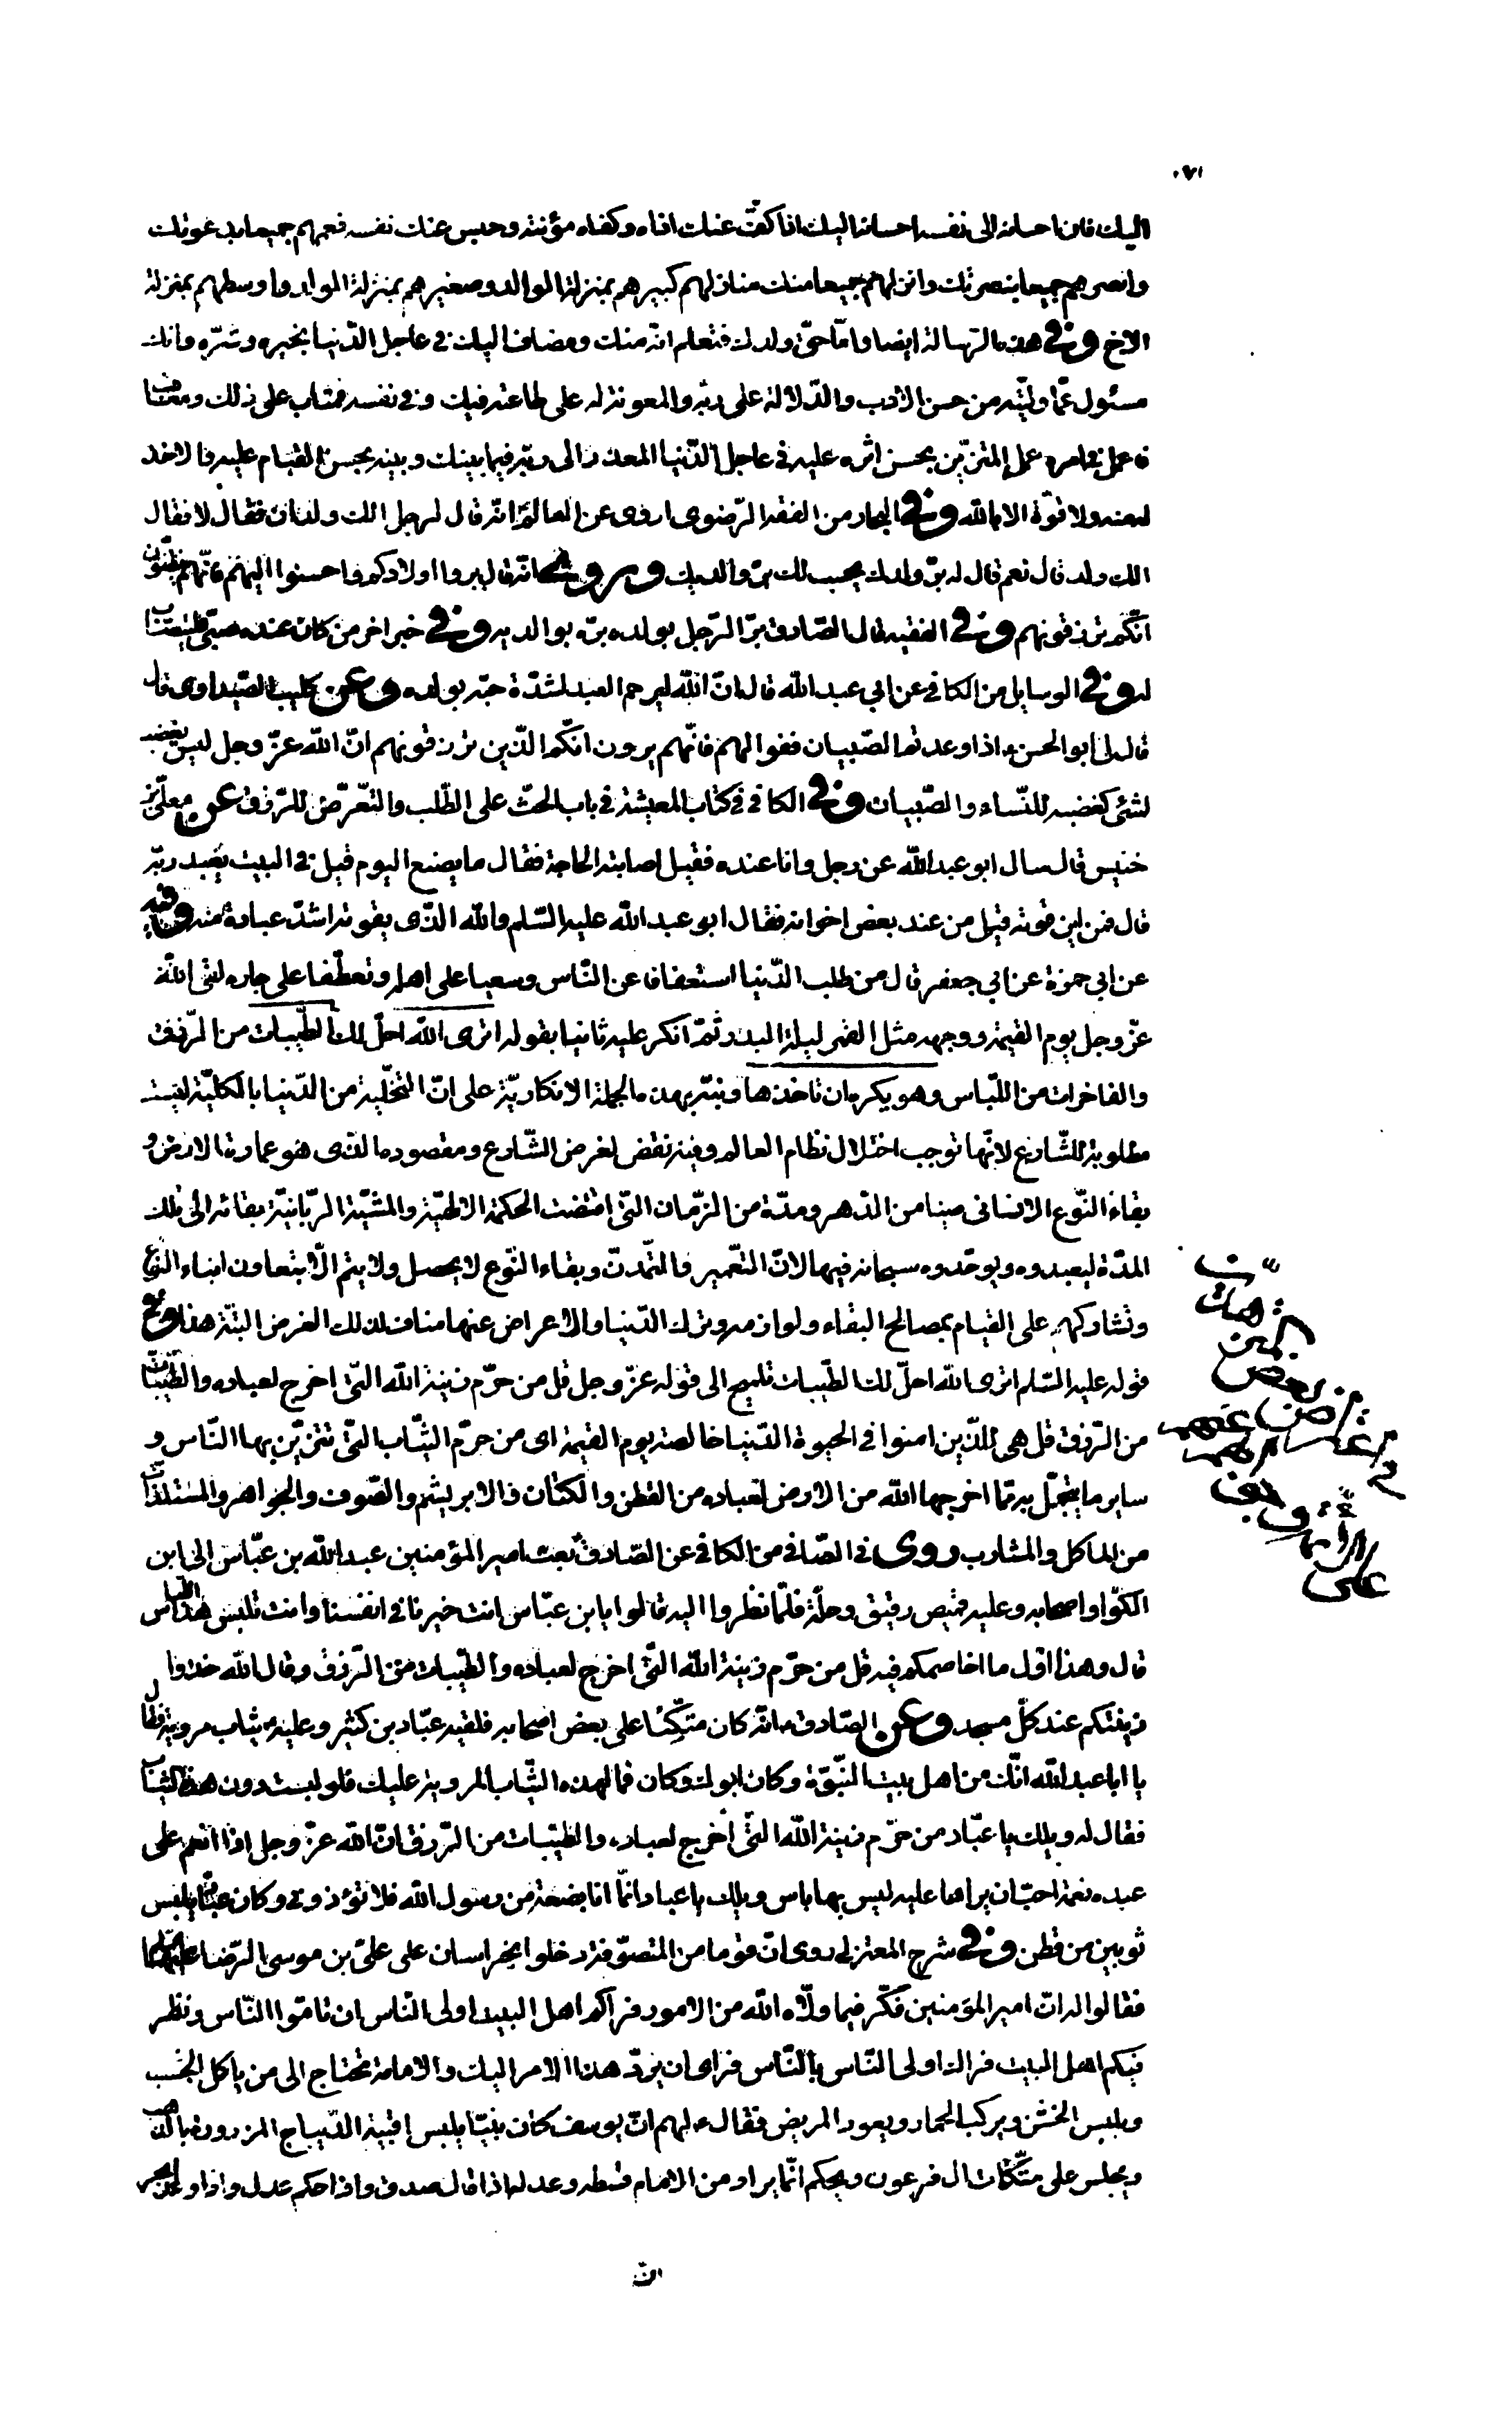 ٠٧١
اليك فان احسانه الى نفسه احسانه اليك اذا كفّ عنك اذاه وكفاه مؤنته وحبس عنك نفسه فعمهم جميعا بدعوتك
وانصرهم جميعا بنصرتك وانزلهم جميعا منك منازلهم كبيرهم بمنزلة الوالد وصغيرهم بمنزلة الولد واوسطهم بمنزلة
الاخ وفى هذه الرسالة ايضا وامّا حقّ ولدك فتعلم انّه منك ومضاف اليك فى عاجل الدّنيا بخيره وشرّه وانك
مسئول عمّا ولّيته من حسن الادب والدّلالة على ربّه والمعونة له على طاعته فيك وفى نفسه فمثاب على ذلك ومعاقب
فاعمل فى امره عمل المتزيّن بحسن اثره عليه فى عاجل الدّنيا المعذر الى ربّه فيما بينك وبينه بحسن القيام عليه والاخذ
له منه ولا قوّة الا بالله وفى البحار من الفقه الرّضوى اروى عن العالمؑ انّه قال لرجل الك ولدان فقال لا فقال
الك ولد قال نعم قال له برّ ولدك يحسب لك برّ والديك وروىؑ انّه قال برّوا اولادكم واحسنوا اليهم فانّهم يظنّون
انّكم ترزقونهم وفى الفقيه قال الصّادق برّ الرّجل بولده برّه بوالديه وفى خبر اخر من كان عنده صبىّ فليتصاب
له وفى الوسايل من الكافى عن ابى عبد الله قال انّ الله ليرحم العبد لشدّة حبّه بولده وعن كليب الصّيداوى قال
قال لى ابو الحسن اذا وعدتم الصّبيان ففوا لهم فانّهم يرون انكّم الذّين ترزقونهم انّ الله عزّ وجل ليس يغضب
لشئ كغضبه للنّساء والصّبيان وفى الكافى فى كتاب المعيشة فى باب الحثّ على الطّلب والتّعرّض للرّزق عن معلّى بن
خنيس قال سال ابو عبد الله عن رجل وانا عنده فقيل اصابته الحاجة فقال ما يصنع اليوم قيل فى البيت يعبد ربّه
قال فمن اين قوته قيل من عند بعض اخوانه فقال ابو عبد الله عليه السّلم والله الذّى يقوته اشدّ عبادة منه وفيه
عن ابى حمزة عن ابى جعفر قال من طلب الدّنيا استعفافا عن النّاس وسعيا على اهله وتعطّفا على جاره لقى الله
عزّ وجل يوم القيمة ووجهه مثل القمر ليلة البدر ثمّ انكر عليه ثانيا بقوله اترى الله احلّ لك الطّيبات من الرّزق
والفاخرات من اللّباس وهو يكره ان تاخذها ونبّه بهذه الجملة الانكاريّة على انّ التّخلّية من الدّنيا بالكليّة ليست
مطلوبة للشّارع لانّها توجب اختلال نظام العالم وفيه نقض لغرض الشّارع ومقصوده الذّى هو عمارة الارض و
بقاء النّوع الانسانى حينا من الدّهر ومدّة من الزّمان التّى اقتضت الحكمة الالهيّة والمشيّة الرّبانيّة بقائه الى تلك
المدّة ليعبدوه ويوحّدوه سبحانه فيها لانّ التّعمير والتّمدّن وبقاء النّوع لا يحصل ولا يتم الّا بتعاون ابناء النوع
وتشاركهم على القيام بمصالح البقاء ولوازمه وترك الدّنيا والاعراض عنها مناف لذلك الغرض البتّة هذا وفى
قوله عليه السّلم اترى الله احلّ لك الطّيبات تلميح الى قوله عزّ وجل قل من حرّم زينة الله التّى اخرج لعباده والطّيّبات
من الرّزق قل هى للذّين امنوا فى الحيوة الدّنيا خالصة يوم القيمة اى من حرّم الثّياب التّى تتزيّن بها الناس و
ساير ما يتجمّل به ممّا اخرجها الله من الارض لعباده من القطن والكتّان والابريشم والصّوف والجواهر والمستلذّات
من الماكل والمشارب روى فى الصّافى من الكافى عن الصّادقؑ بعث امير المؤمنين عبد الله بن عبّاس الى ابن
الكوّا واصحابه وعليه قميص رقيق وحلّة فلمّا نظروا اليه قالوا يابن عبّاس انت خيرنا فى انفسنا وانت تلبس هذا اللّباس
قال وهذا اوّل ما اخاصمكم فيه قل من حرّم زينة الله التّى اخرج لعباده والطّيبات من الرّزق وقال الله خذوا
زينتكم عند كلّ مسجد وعن الصّادق انّه كان متّكئا على بعض اصحابه فلقيه عبّاد بن كثير وعليه ثياب مروية فقال
يا ابا عبد الله انّك من اهل بيت النّبوّة وكان ابوك وكان فما لهذه الثّياب المروية عليك فلو لبست دون هذه الثّياب
فقال له ويلك يا عبّاد من حرّم زينة الله التّى اخرج لعباده والطّيّبات من الرّزق انّ الله عزّ وجل اذا انعم على
عبده نعمة احبّ ان يراها عليه ليس بها باس ويلك يا عباد انّما انا بضعة من رسول الله فلا تؤذونى وكان عبّاد يلبس
ثوبين من قطن وفى شرح المعتزلى روى انّ قوما من المتصوّفة دخلوا بخراسان على علىّ بن موسى الرّضا
فقالوا له انّ امير المؤمنين فكّر فيما ولّاه الله من الامور فراكم اهل البيت اولى النّاس ان تامّوا النّاس ونظر
فيكم اهل البيت فراك اولى النّاس بالنّاس فراى ان يردّ هذا الامر اليك والامامة تحتاج الى من ياكل الجشب
ويلبس الخشن ويركب الحمار ويعود المريض فقال لهم انّ يوسف كان نبيّا يلبس اقبية الدّيباج المزرورة بالذّهب
ويجلس على متّكات ال فرعون ويحكم انّما يراد من الامام قسطه وعدله اذا قال صدق واذا حكم عدل واذا وعد انجز
انّ